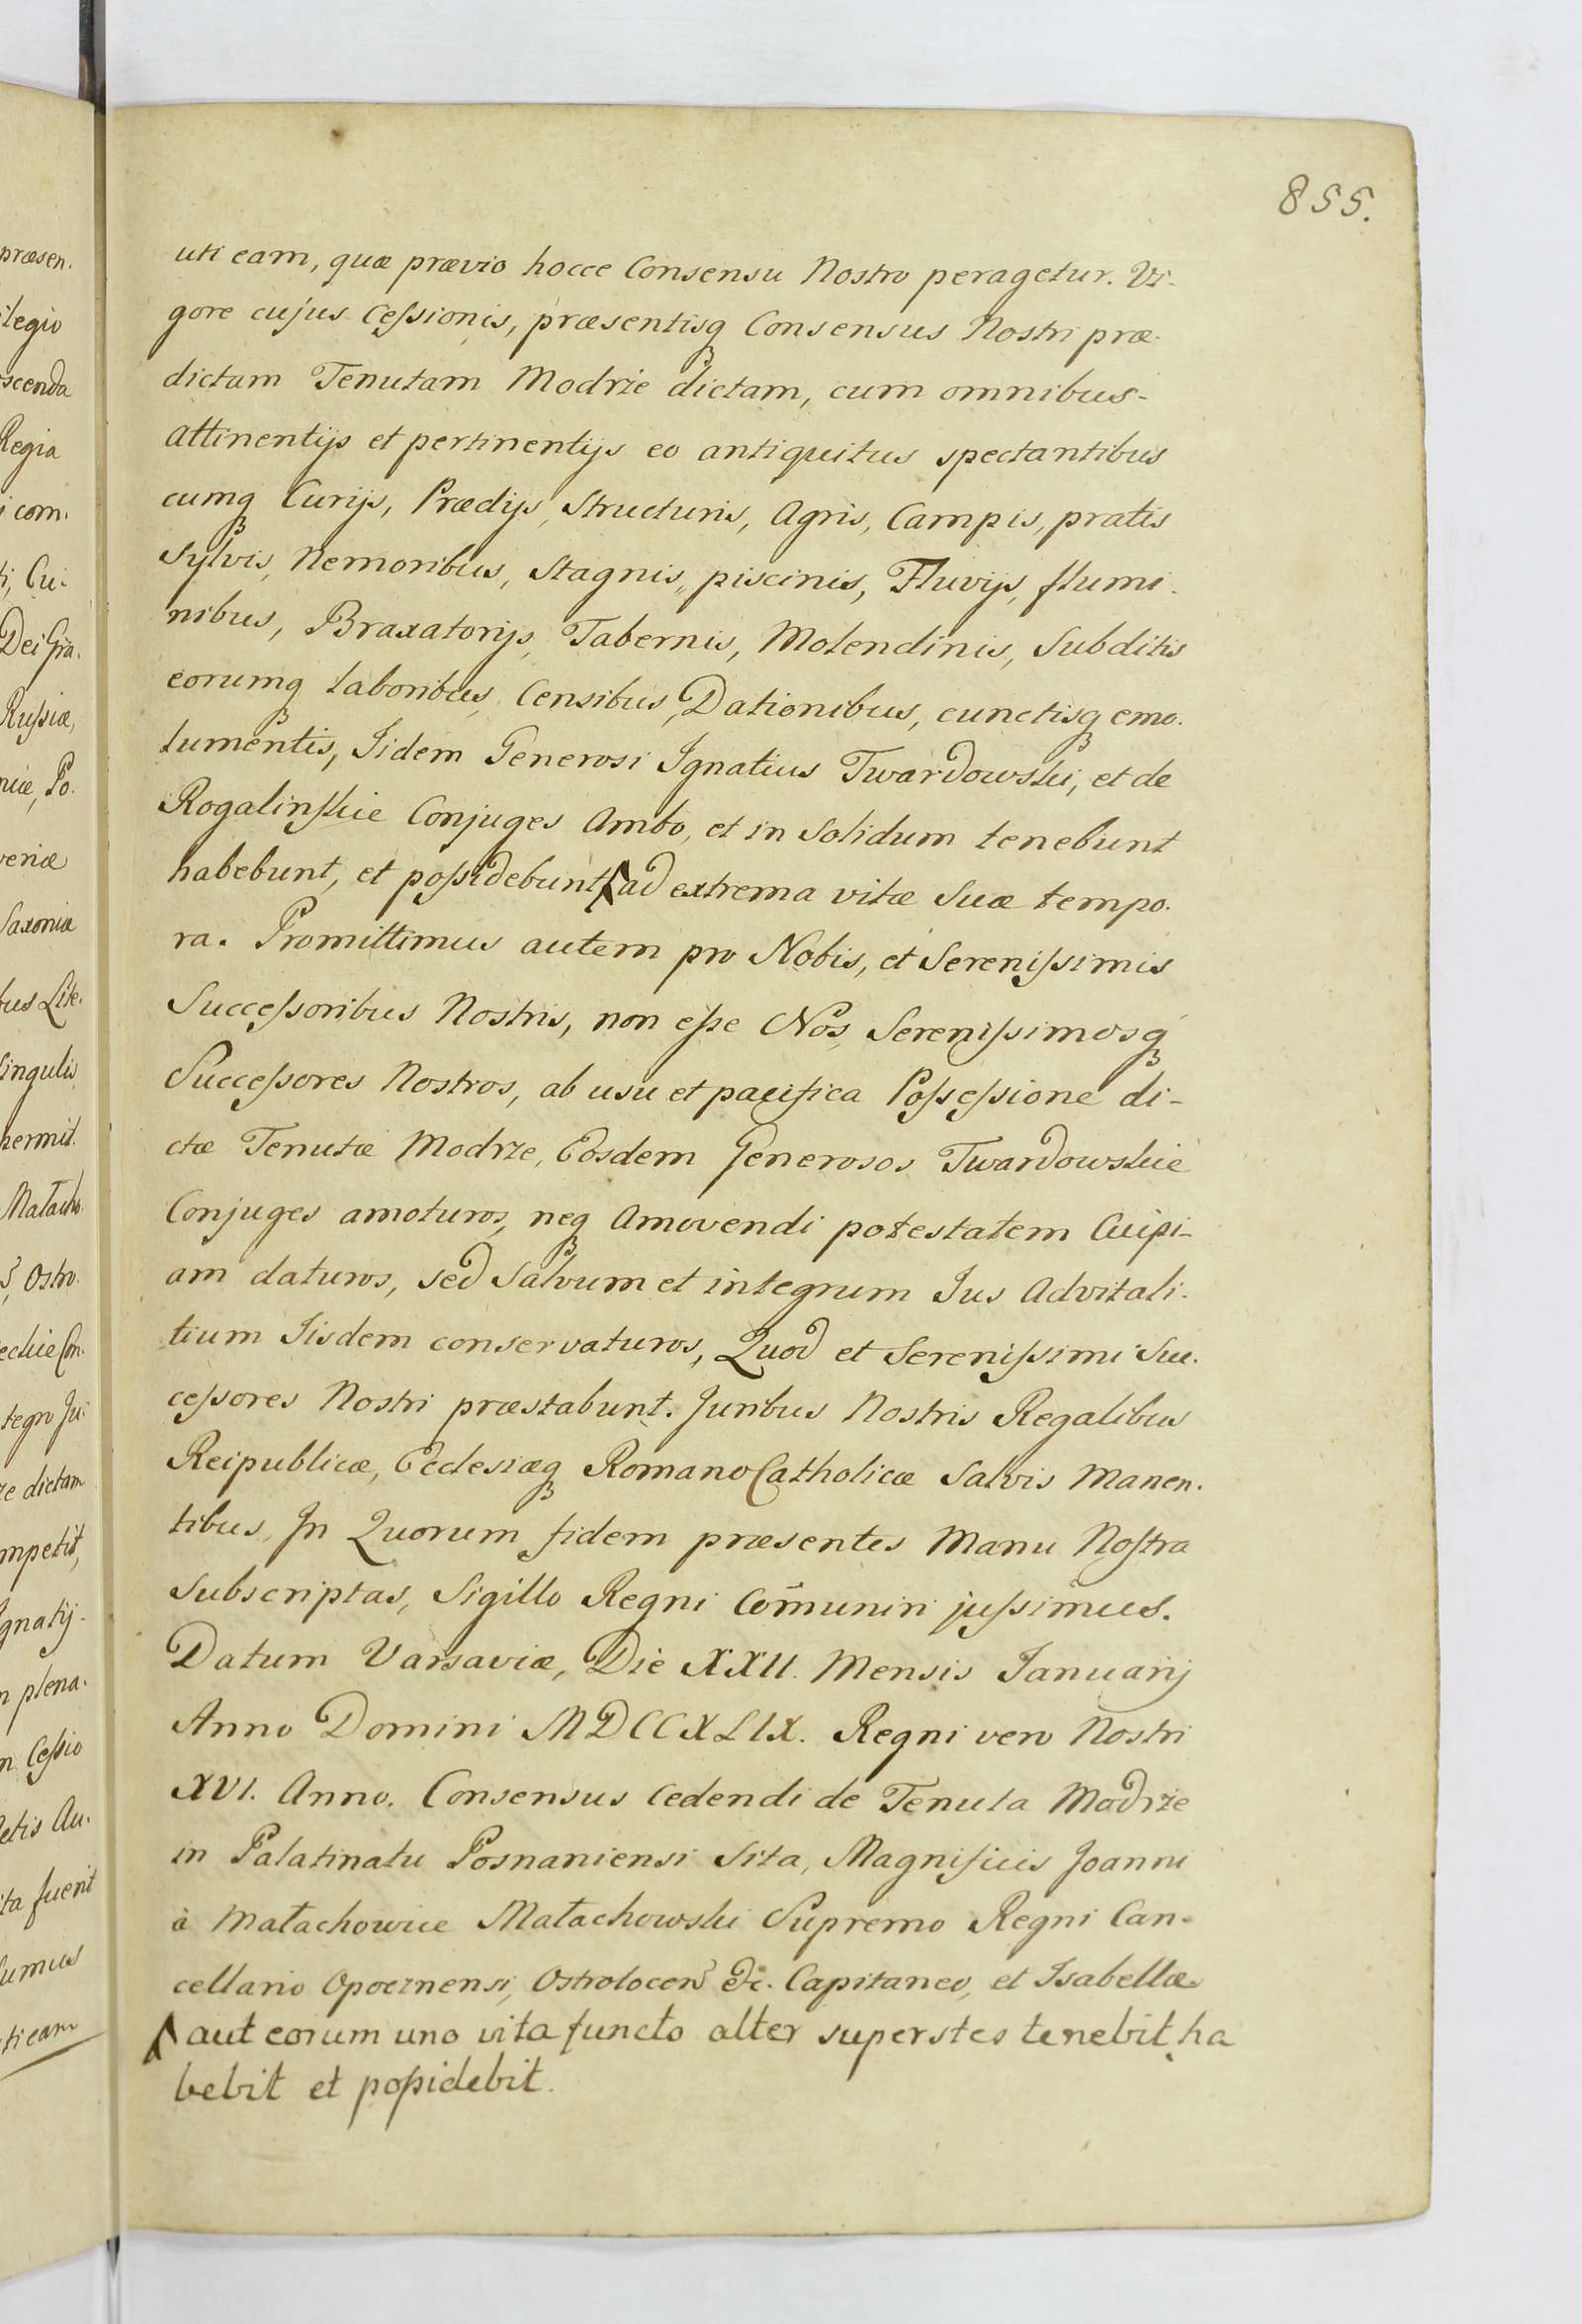 855.
uti eam, quæ prævio hocce Consensu Nostro peragetur. Vi-
gore cujus Ceſsionis, præsentisq Consensus Nostri præ-
dictam Tenutam Modrże dictam, cum omnibus-
attinentijs et pertinentijs eo antiquitus spectantibus
cumq Curijs, Prædijs, Structuris, Agris, Campis, pratis
Sylvis, Nemoribus, Stagnis, piscinis, Fluvijs, flumi-
nibus, Braxatorijs, Tabernis, Molendinis, Subditis
eorumq laboribus, Censibus, Dationibus, cunctisq emo-
lumentis, Iidem Generosi Ignatius Twardowski, et de
Rogalinſkie Conjuges Ambo, et in Solidum tenebunt
habebunt, et poſsidebunt, ad extrema vitæ Suæ tempo-
ra. Promittimus autem pro Nobis, et Sereniſsimis
Succeſsoribus Nostris, non eſse Nos, Sereniſsimosq
Succeſsores Nostros, ab usu et pacifica Poſseſsione di-
ctæ Tenutæ Modrze, Eosdem Generosos Twardowskie
Conjuges amoturos, neq Amovendi potestatem Cuipi-
am daturos, sed Salvum et integrum Ius Advitali-
tium Iisdem conservaturos, Quod et Sereniſsimi Suc-
ceſsores Nostri præstabunt. Juribus Nostris Regalibus
Reipublicæ, Ecclesiæq Romano Catholicæ Salvis Manen-
tibus. In Quorum fidem præsentes Manu Noſtra
Subscriptas, Sigillo Regni Com̄uniri juſsimus.
Datum Varsaviæ, Die XXII. Mensis Ianuarij
Anno Domini MDCCXLIX. Regni vero Nostri
XVI. Anno. Consensus Cedendi de Tenuta Modrże
in Palatinatu Posnaniensi Sita, Magnificis Joanni
à Małachowice Małachowski Supremo Regni Can-
cellario Opocznensi, Ostrołocen &c. Capitaneo, et Isabellæ
aut eorum uno vita functo alter superstes tenebit, ha
bebit et poſsidebit.